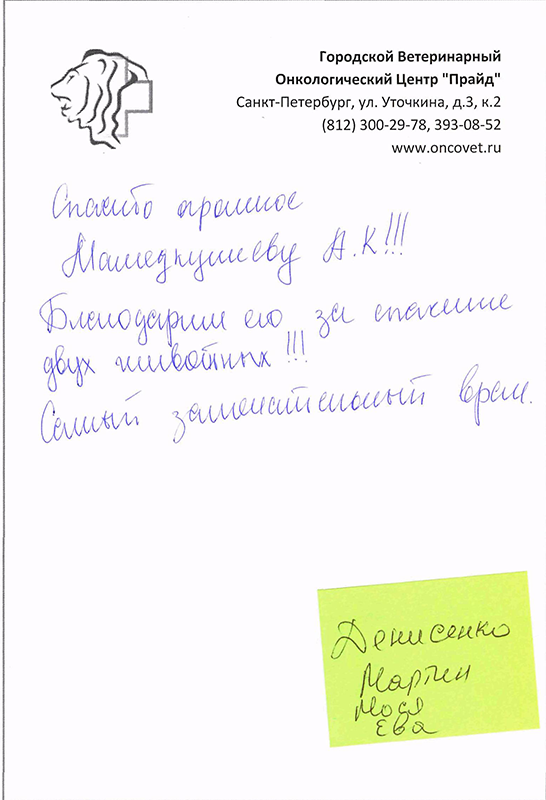 Городской Ветеринарный
Онкологический Центр "Прайд"
Санкт-Петербург, ул. Уточкина, д.3, к.2
(812) 300-29-78, 393-08-52
www.oncovet.ru
Спасибо огромное
Мамедкулиеву А.К!!!
Благодарим его за спасение
двух животных!!!
Самый замечательный врач.
Денисенко
Мартин
Мося
Ева